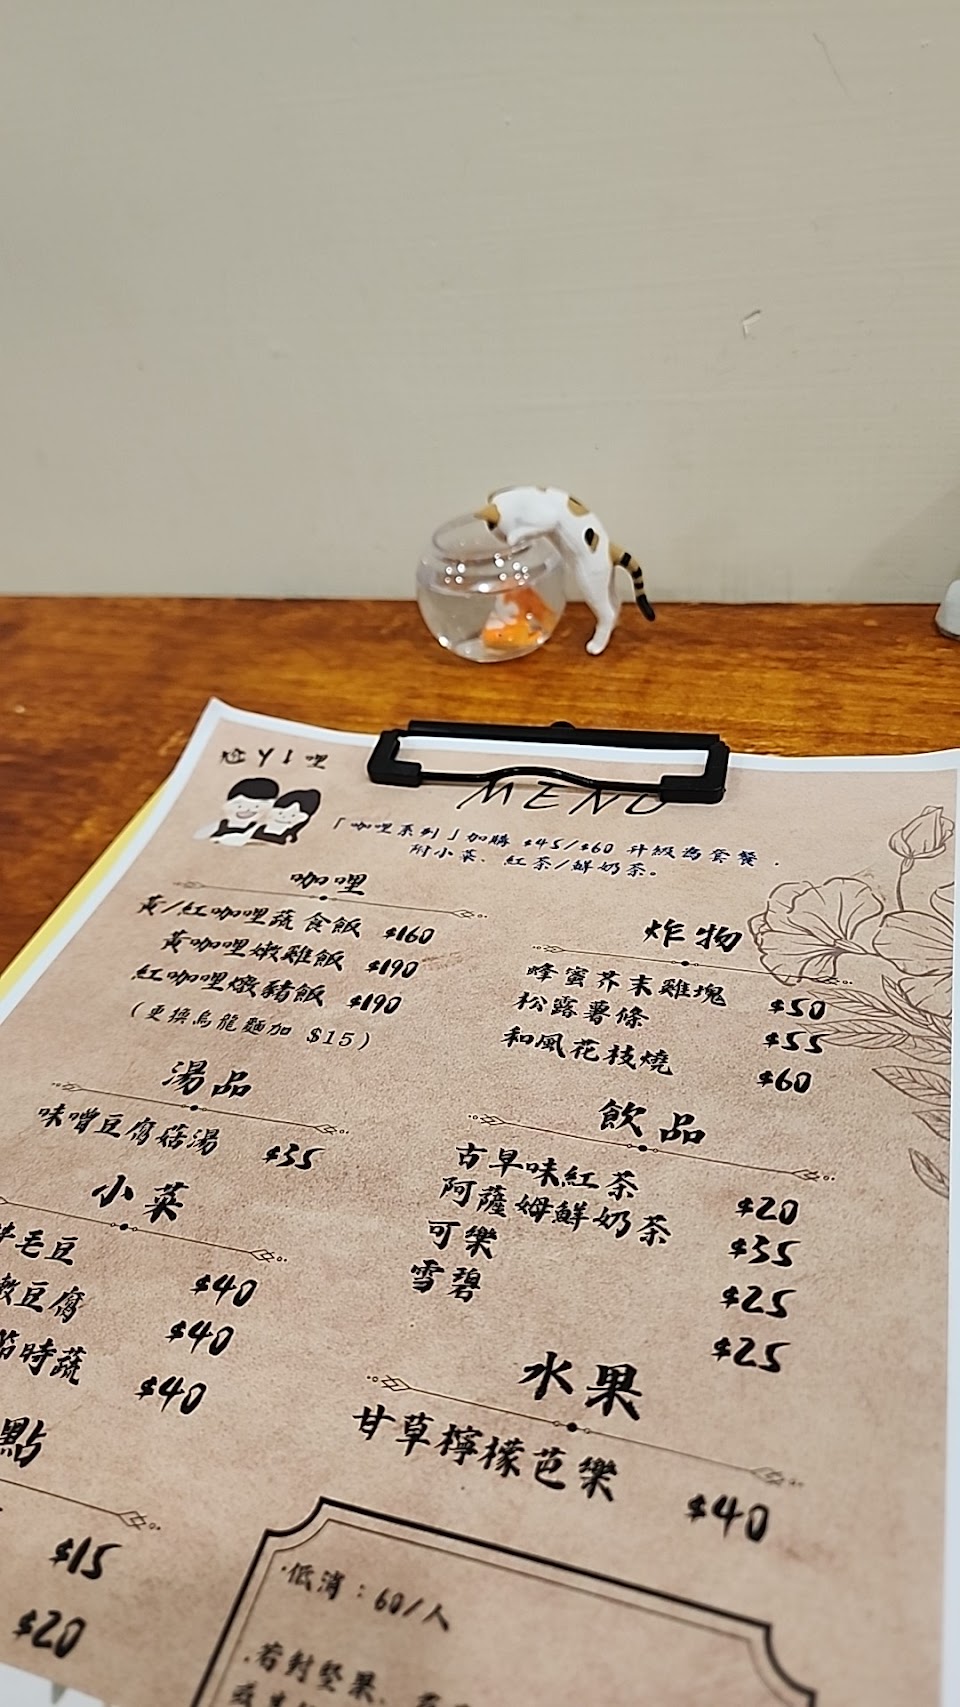 MENU
「咖哩系列」加購 $45/$60 升級為套餐.
附小菜、紅茶/鮮奶茶。
咖哩
黃/紅咖哩蔬食飯 $160
黃咖哩嫩雞飯 $190
紅咖哩燉豬飯 $190
(更換烏龍麵加 $15)
湯品
味噌豆腐菇湯 $35
小菜
毛豆 $40
豆腐 $40
時蔬 $40
點
$15
$20
炸物
蜂蜜芥末雞塊 $50
松露薯條 $55
和風花枝燒 $60
飲品
古早味紅茶 $20
阿薩姆鮮奶茶 $35
可樂 $25
雪碧 $25
水果
甘草檸檬芭樂 $40
·低消:60/人
·若對堅果、